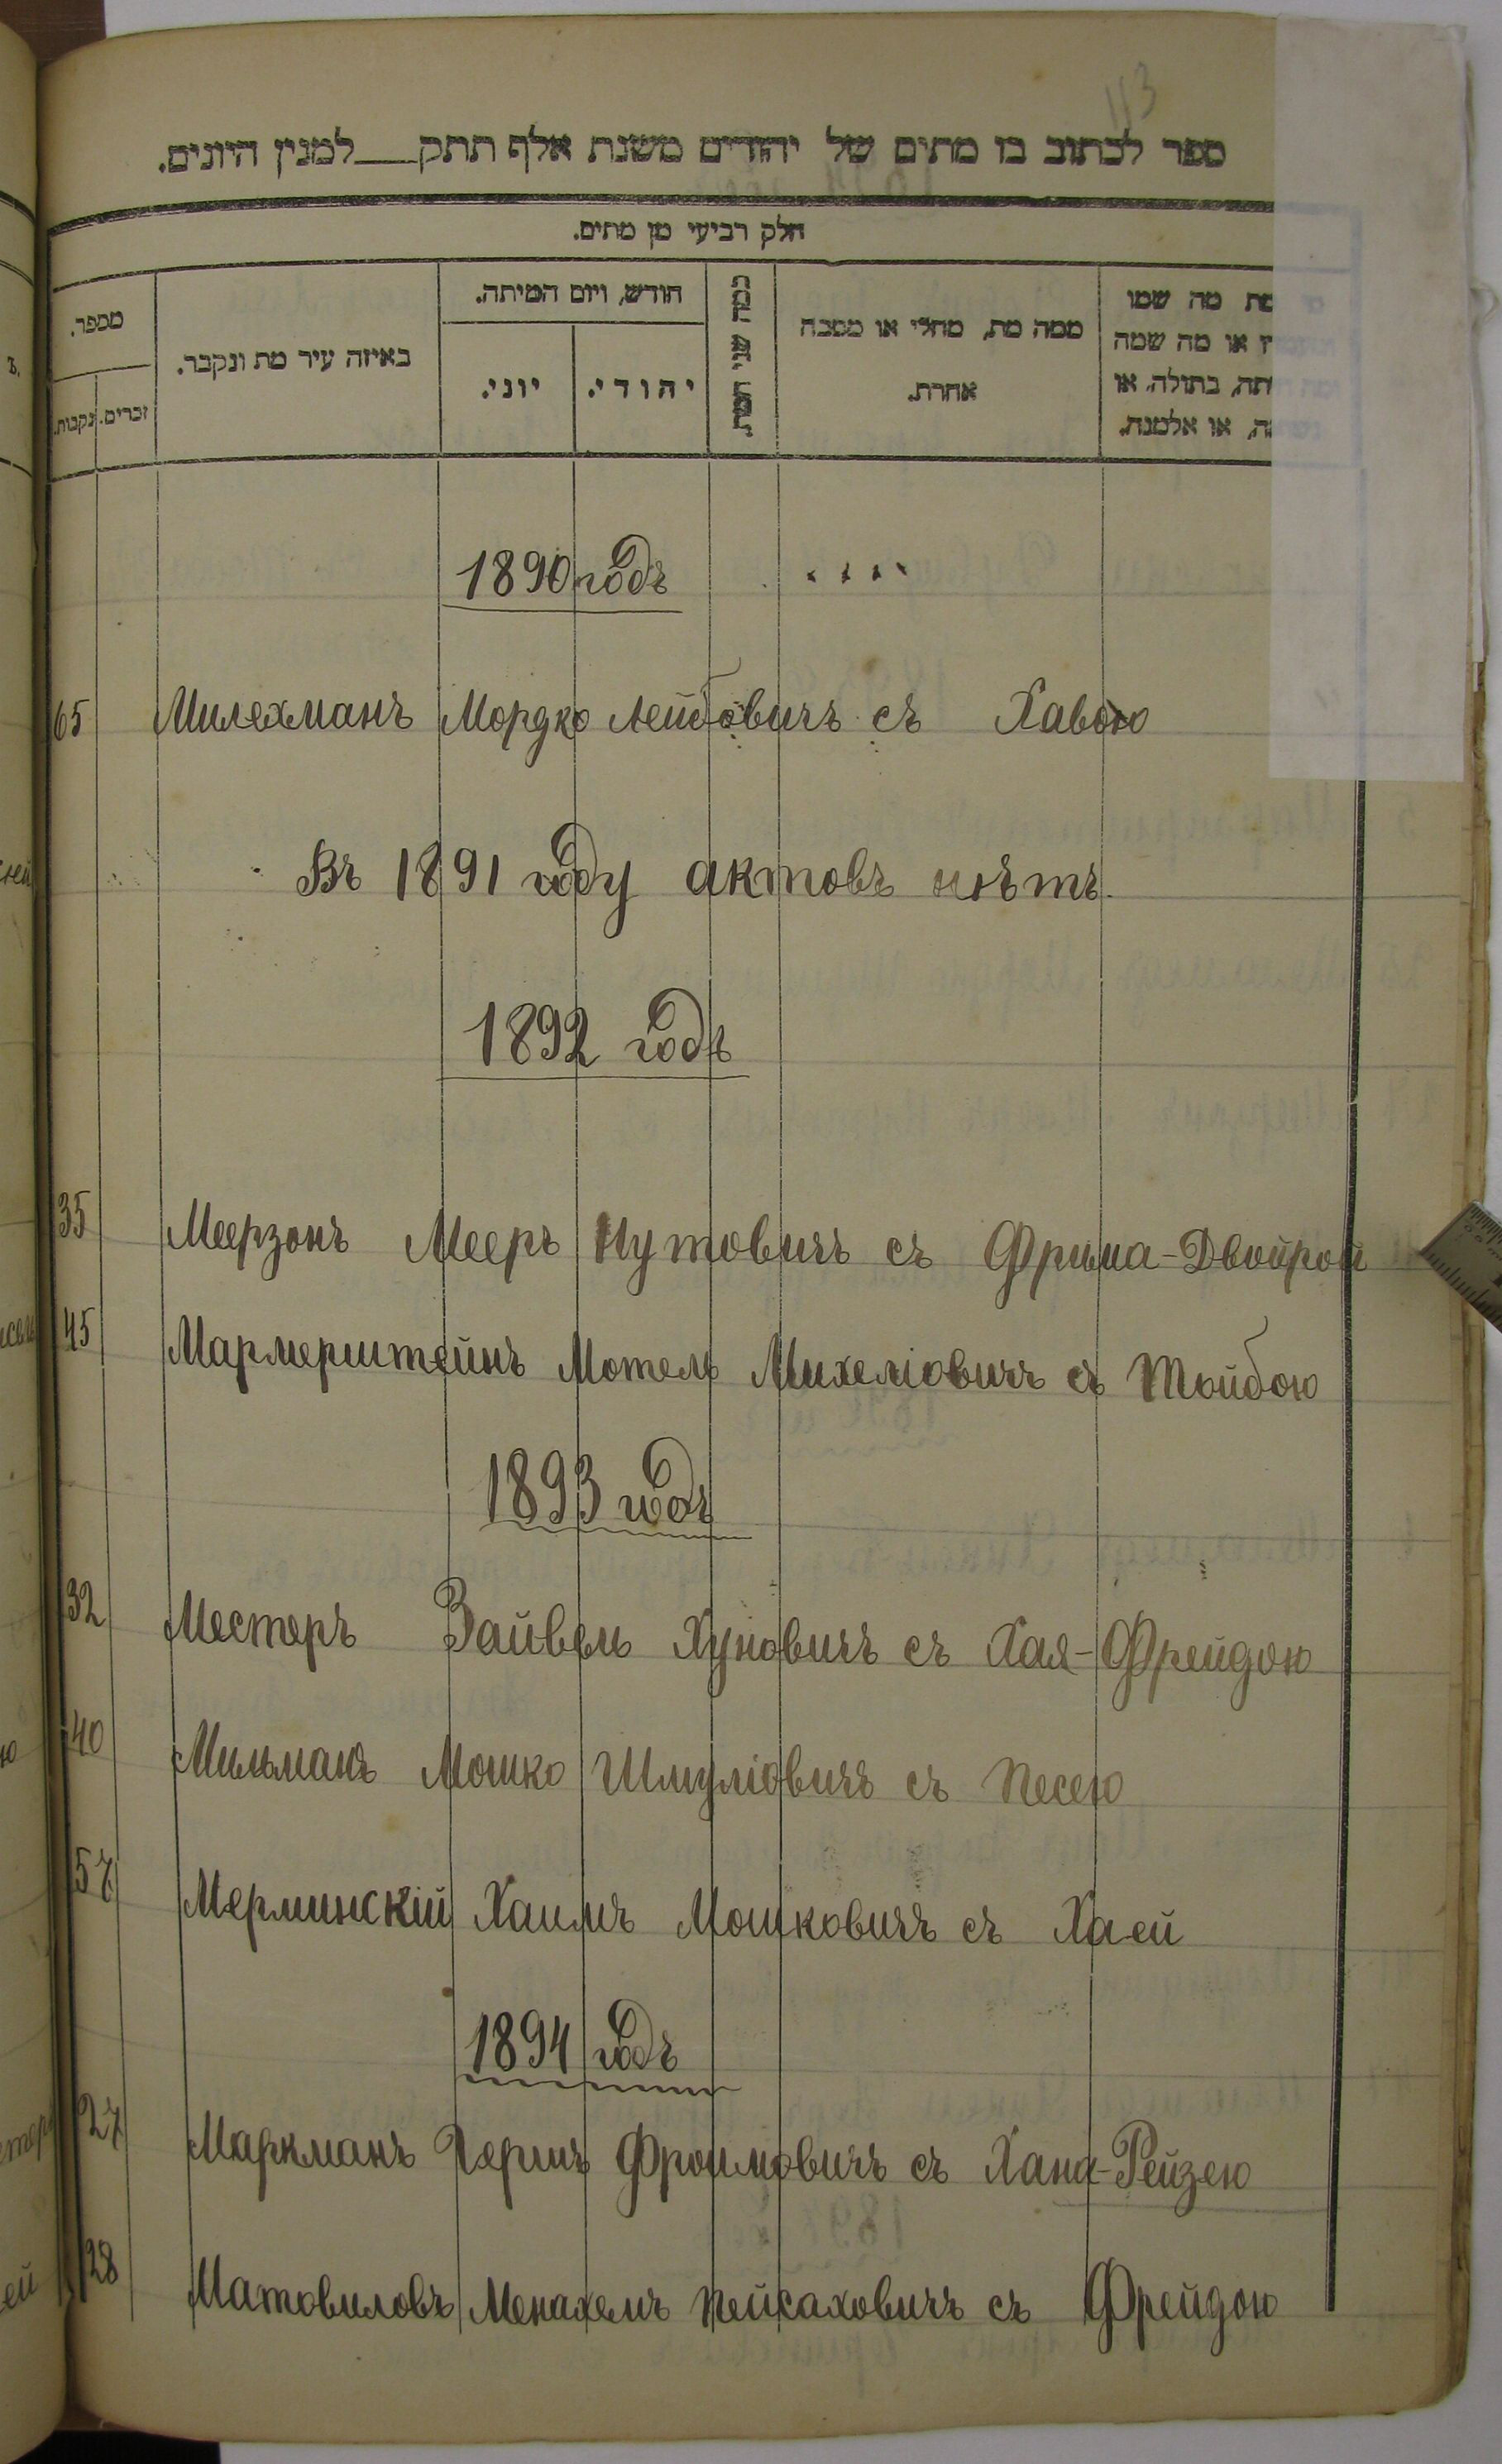 113
ספר לכתוב בו מתים של יהודים משנת אלף תתק___למנין היונים.
חלק רביעי מן מתים.
מספר.
זכרים.
נקבות.
באיזה עיר מת ונקבר.
חודש, ויום המיתה.
יוני.
יהודי.
כמה שני המת.
ממה מת, מחלי או מסבה
אחרת.
מת מה שמו
או מה שמה
בתולה, או
או אלמנה.
1890 годъ
65 Милехманъ Мордко Лейбовичъ съ Хавою
Въ 1891 году актовъ нѣтъ.
1892 годъ
35 Меерзонъ Мееръ Нутовичъ съ Фрима-Двойрой
45 Мармерштейнъ Мотель Михеліовичъ съ Тойбою
1893 годъ
32 Местеръ Зайвель Хуновичъ съ Хая-Фрейдою
40 Мильманъ Мошко Шмуліовичъ съ Песею
57 Мерминскій Хаимъ Мошковичъ съ Хаей
1894 годъ
27 Маркманъ Гершъ Фроимовичъ съ Хана-Рейзею
28 Матовиловъ Менахемъ Пейсаховичъ съ Фрейдою